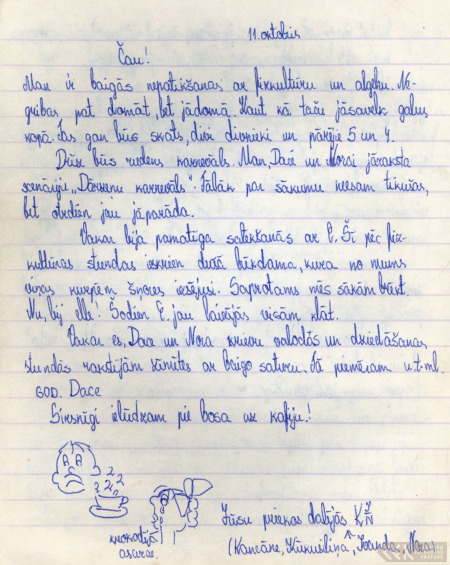 11. oktobris
Čau!
Man ir baigās nepatikšanas ar fizkultūru un algebru. Ne-
gribas pat domāt, bet jādomā. Kaut kā taču jāsavelk galus
kopā. Tas gan būs skats, divi divnieki un pārējie 5 un 4.
Drīz būs rudens karnevāls. Man, Dacei un Norai jāraksta
scenāriji „Dārzeņu karnevāls". Tālāk par sākumu neesam tikušas,
bet otrdien jau jāparāda.
Vakar bija pamatīga satikšanās ar E. Šī pēc fiz-
kultūras stundas ieskrien dušā brēkdama, kura no mums
viņas kurpēm šņores iesējusi. Saprotams mēs sākām brēkt.
Nu, bij elle! Šodien E. jau lavījās visām klāt.
Vakar es, Dace un Nora krievu valodas un dziedāšanas
stundās rakstījām zīmītes ar baigo saturu. Tā piemēram u.t.ml.
GOD. Dace
Sirsnīgi ielūdzam pie bosa uz kafiju!
krokodila
asaras.
Jūsu priekos dalījās K J N
(Kancāne, , Ivanda, Nora)